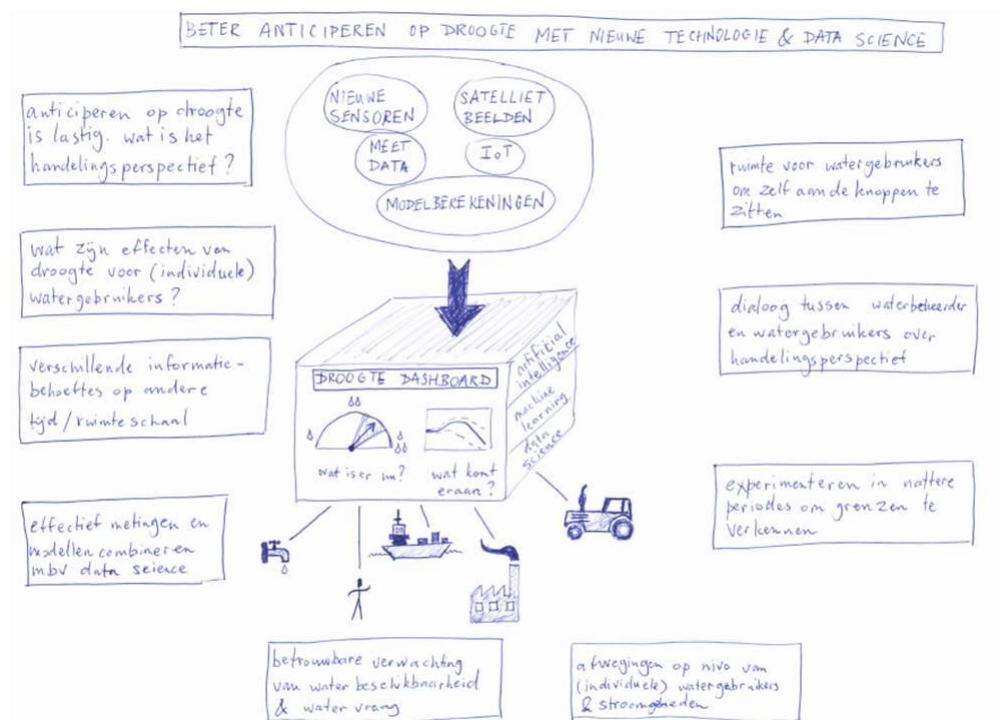 BETER ANTICIPEREN OP DROOGTE MET NIEUWE TECHNOLOGIE & DATA SCIENCE
anticiperen op droogte
is lastig. wat is het
handelingsperspectief?
wat zijn effecten van
droogte voor (individuele)
watergebruikers?
verschillende informatie-
behoeftes op andere
tijd/ruimteschaal
effectief metingen en
modellen combineren
mbv data science
NIEUWE
SENSOREN
SATELLIET
BEELDEN
MEET
DATA
IoT
MODELBEREKENINGEN
DROOGTE DASHBOARD
wat is er nu?
wat komt
eraan?
artificial
intelligence
machine
learning
data
science
ruimte voor watergebruikers
om zelf aan de knoppen te
zitten
dialoog tussen waterbeheerder
en watergebruikers over
handelingsperspectief
experimenteren in nattere
periodes om grenzen te
verkennen
betrouwbare verwachting
van water beschikbaarheid
& water vraag
afwegingen op nivo van
(individuele) watergebruikers
& stroomgebieden